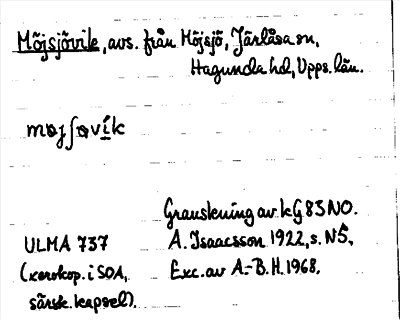 Möjsjövik, avs. från Möjsjö, Järlåsa sn,
Hagunda hd, Upps. län.
mɵjʃɵvík
Granskning av kG 83 NO.
ULMA 737 A. Isaacsson 1922, s. N5,
(xerokop. i SOA, Exc. av A.-B. H. 1968.
särsk. kapsel).